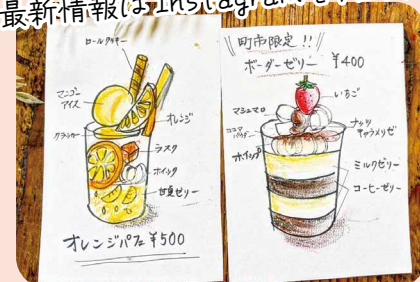 最新情報はInstagram
ロールクッキー
マンゴー
アイス
オレンジ
クラッカー
ラスク
ホイップ
甘夏ゼリー
オレンジパフェ ¥500
町市限定!!
ボーダーゼリー ¥400
いちご
マシュマロ
ココア
パウダー
ナッツ
キャラメリゼ
ホイップ
ミルクゼリー
コーヒーゼリー